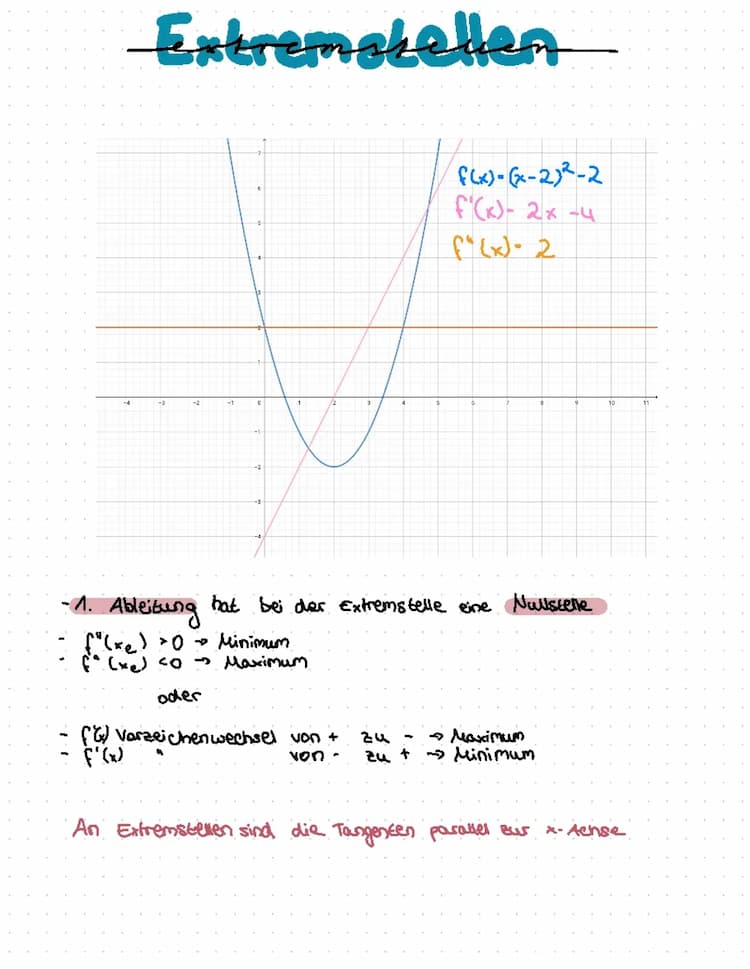 Extremstellen
extremstellen
f(x)=(x-2)²-2
f'(x)= 2x -4
f"(x)= 2
7
6
5
4
3
2
1
-4 -3 -2 -1 0 1 2 3 4 5 6 7 8 9 10 11
-1
-2
-3
-4
- 1. Ableitung hat bei der Extremstelle eine Nullstelle
- f"(xe) >0 → Minimum
- f"(xe) <0 → Maximum
oder
- f'(x) Vorzeichenwechsel von + zu - → Maximum
- f'(x) " von - zu + → Minimum
An Extremstellen sind die Tangenten parallel zur x-Achse